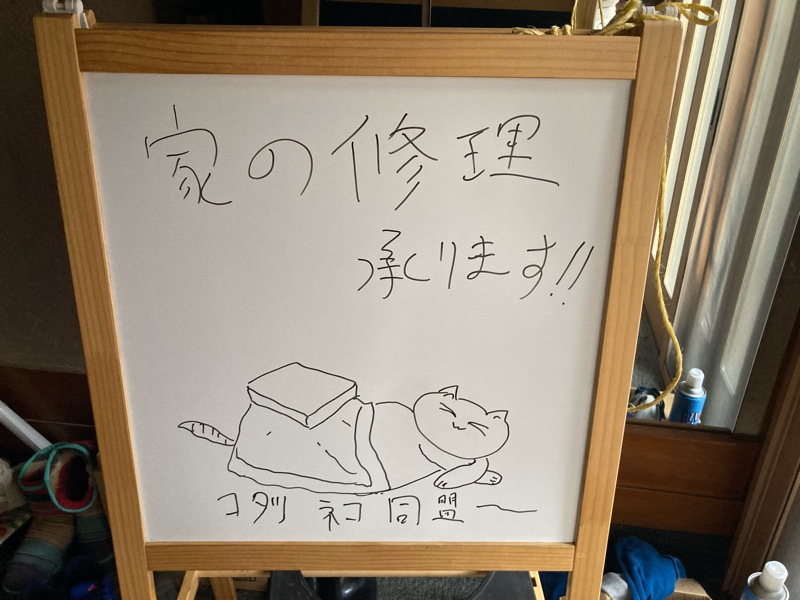 家の修理
承ります!!
コタツ ネコ 同盟〜